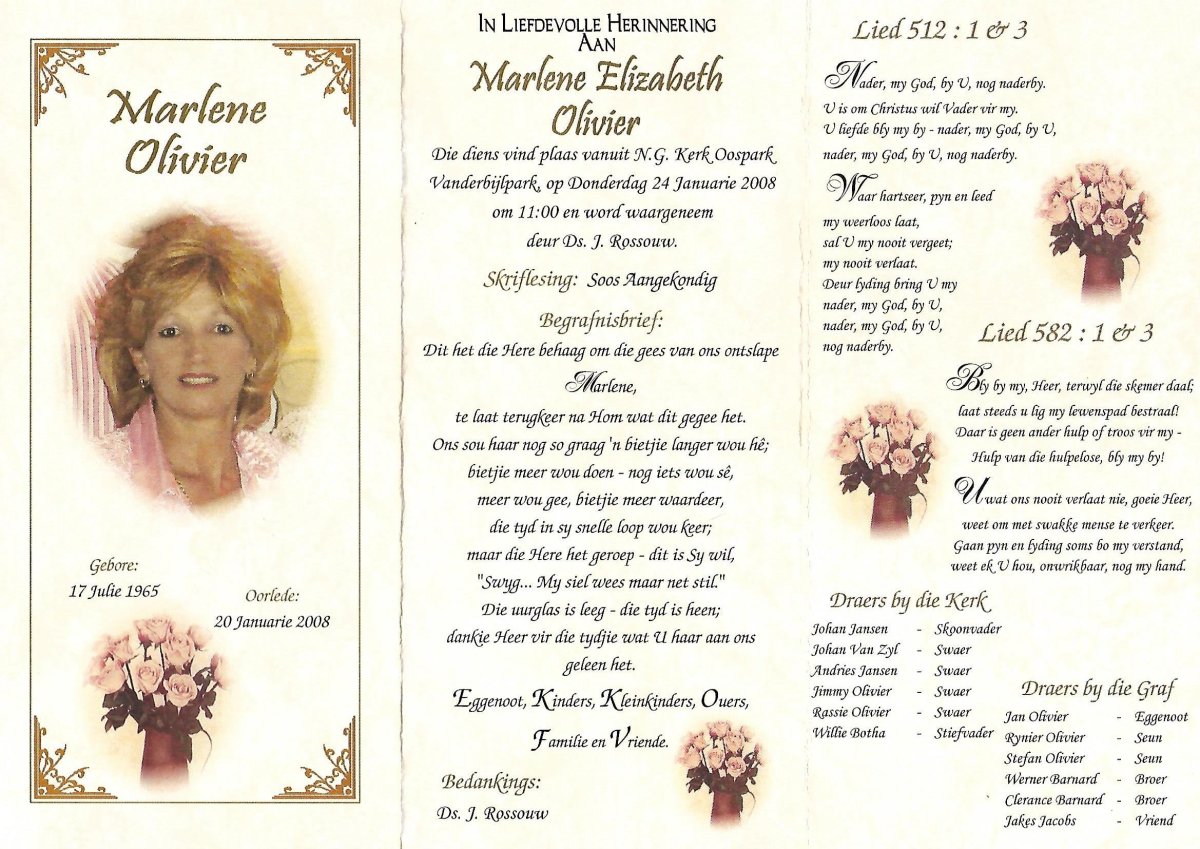 Marlene
Olivier
Gebore:
17 Julie 1965
Oorlede:
20 Januarie 2008
In Liefdevolle Herinnering
Aan
Marlene Elizabeth
Olivier
Die diens vind plaas vanuit N.G. Kerk Oospark
Vanderbijlpark, op Donderdag 24 Januarie 2008
om 11:00 en word waargeneem
deur Ds. J. Rossouw.
Skriflesing: Soos Aangekondig
Begrafnisbrief:
Dit het die Here behaag om die gees van ons ontslape
Marlene,
te laat terugkeer na Hom wat dit gegee het.
Ons sou haar nog so graag 'n bietjie langer wou hê;
bietjie meer wou doen - nog iets wou sê,
meer wou gee, bietjie meer waardeer,
die tyd in sy snelle loop wou keer;
maar die Here het geroep - dit is Sy wil,
"Swyg... My siel wees maar net stil."
Die uurglas is leeg - die tyd is heen;
dankie Heer vir die tydjie wat U haar aan ons
geleen het.
Eggenoot, Kinders, Kleinkinders, Ouers,
Familie en Vriende.
Bedankings:
Ds. J. Rossouw
Lied 512 : 1 & 3
Nader, my God, by U, nog naderby.
U is om Christus wil Vader vir my.
U liefde bly my by - nader, my God, by U,
nader, my God, by U, nog naderby.
Waar hartseer, pyn en leed
my weerloos laat,
sal U my nooit vergeet;
my nooit verlaat.
Deur lyding bring U my
nader, my God, by U,
nader, my God, by U,
nog naderby.
Lied 582 : 1 & 3
Bly by my, Heer, terwyl die skemer daal;
laat steeds u lig my lewenspad bestraal!
Daar is geen ander hulp of troos vir my -
Hulp van die hulpelose, bly my by!
U wat ons nooit verlaat nie, goeie Heer,
weet om met swakke mense te verkeer.
Gaan pyn en lyding soms bo my verstand,
weet ek U hou, onwrikbaar, nog my hand.
Draers by die Kerk
Johan Jansen - Skoonvader
Johan Van Zyl - Swaer
Andries Jansen - Swaer
Jimmy Olivier - Swaer
Rassie Olivier - Swaer
Willie Botha - Stiefvader
Draers by die Graf
Jan Olivier - Eggenoot
Rynier Olivier - Seun
Stefan Olivier - Seun
Werner Barnard - Broer
Clerance Barnard - Broer
Jakes Jacobs - Vriend